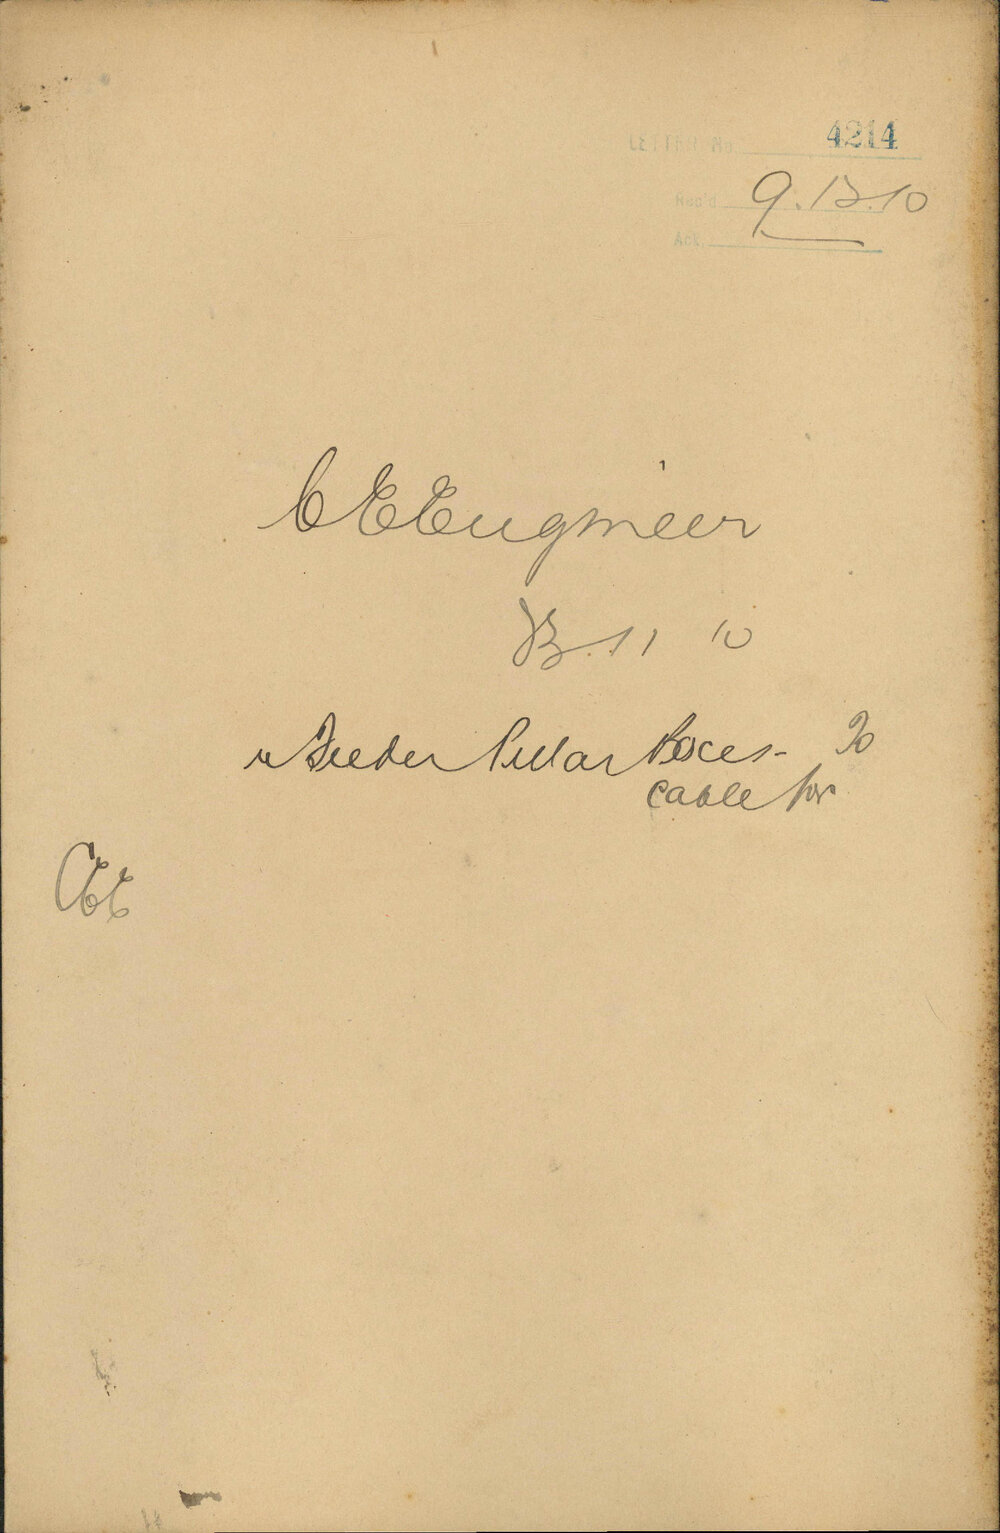 LETTER No. 4214
Rec'd 9.12.10
Ack.
C E Engineer
11 10
re Feeder Pillar Boxes - To
cable for
CEE